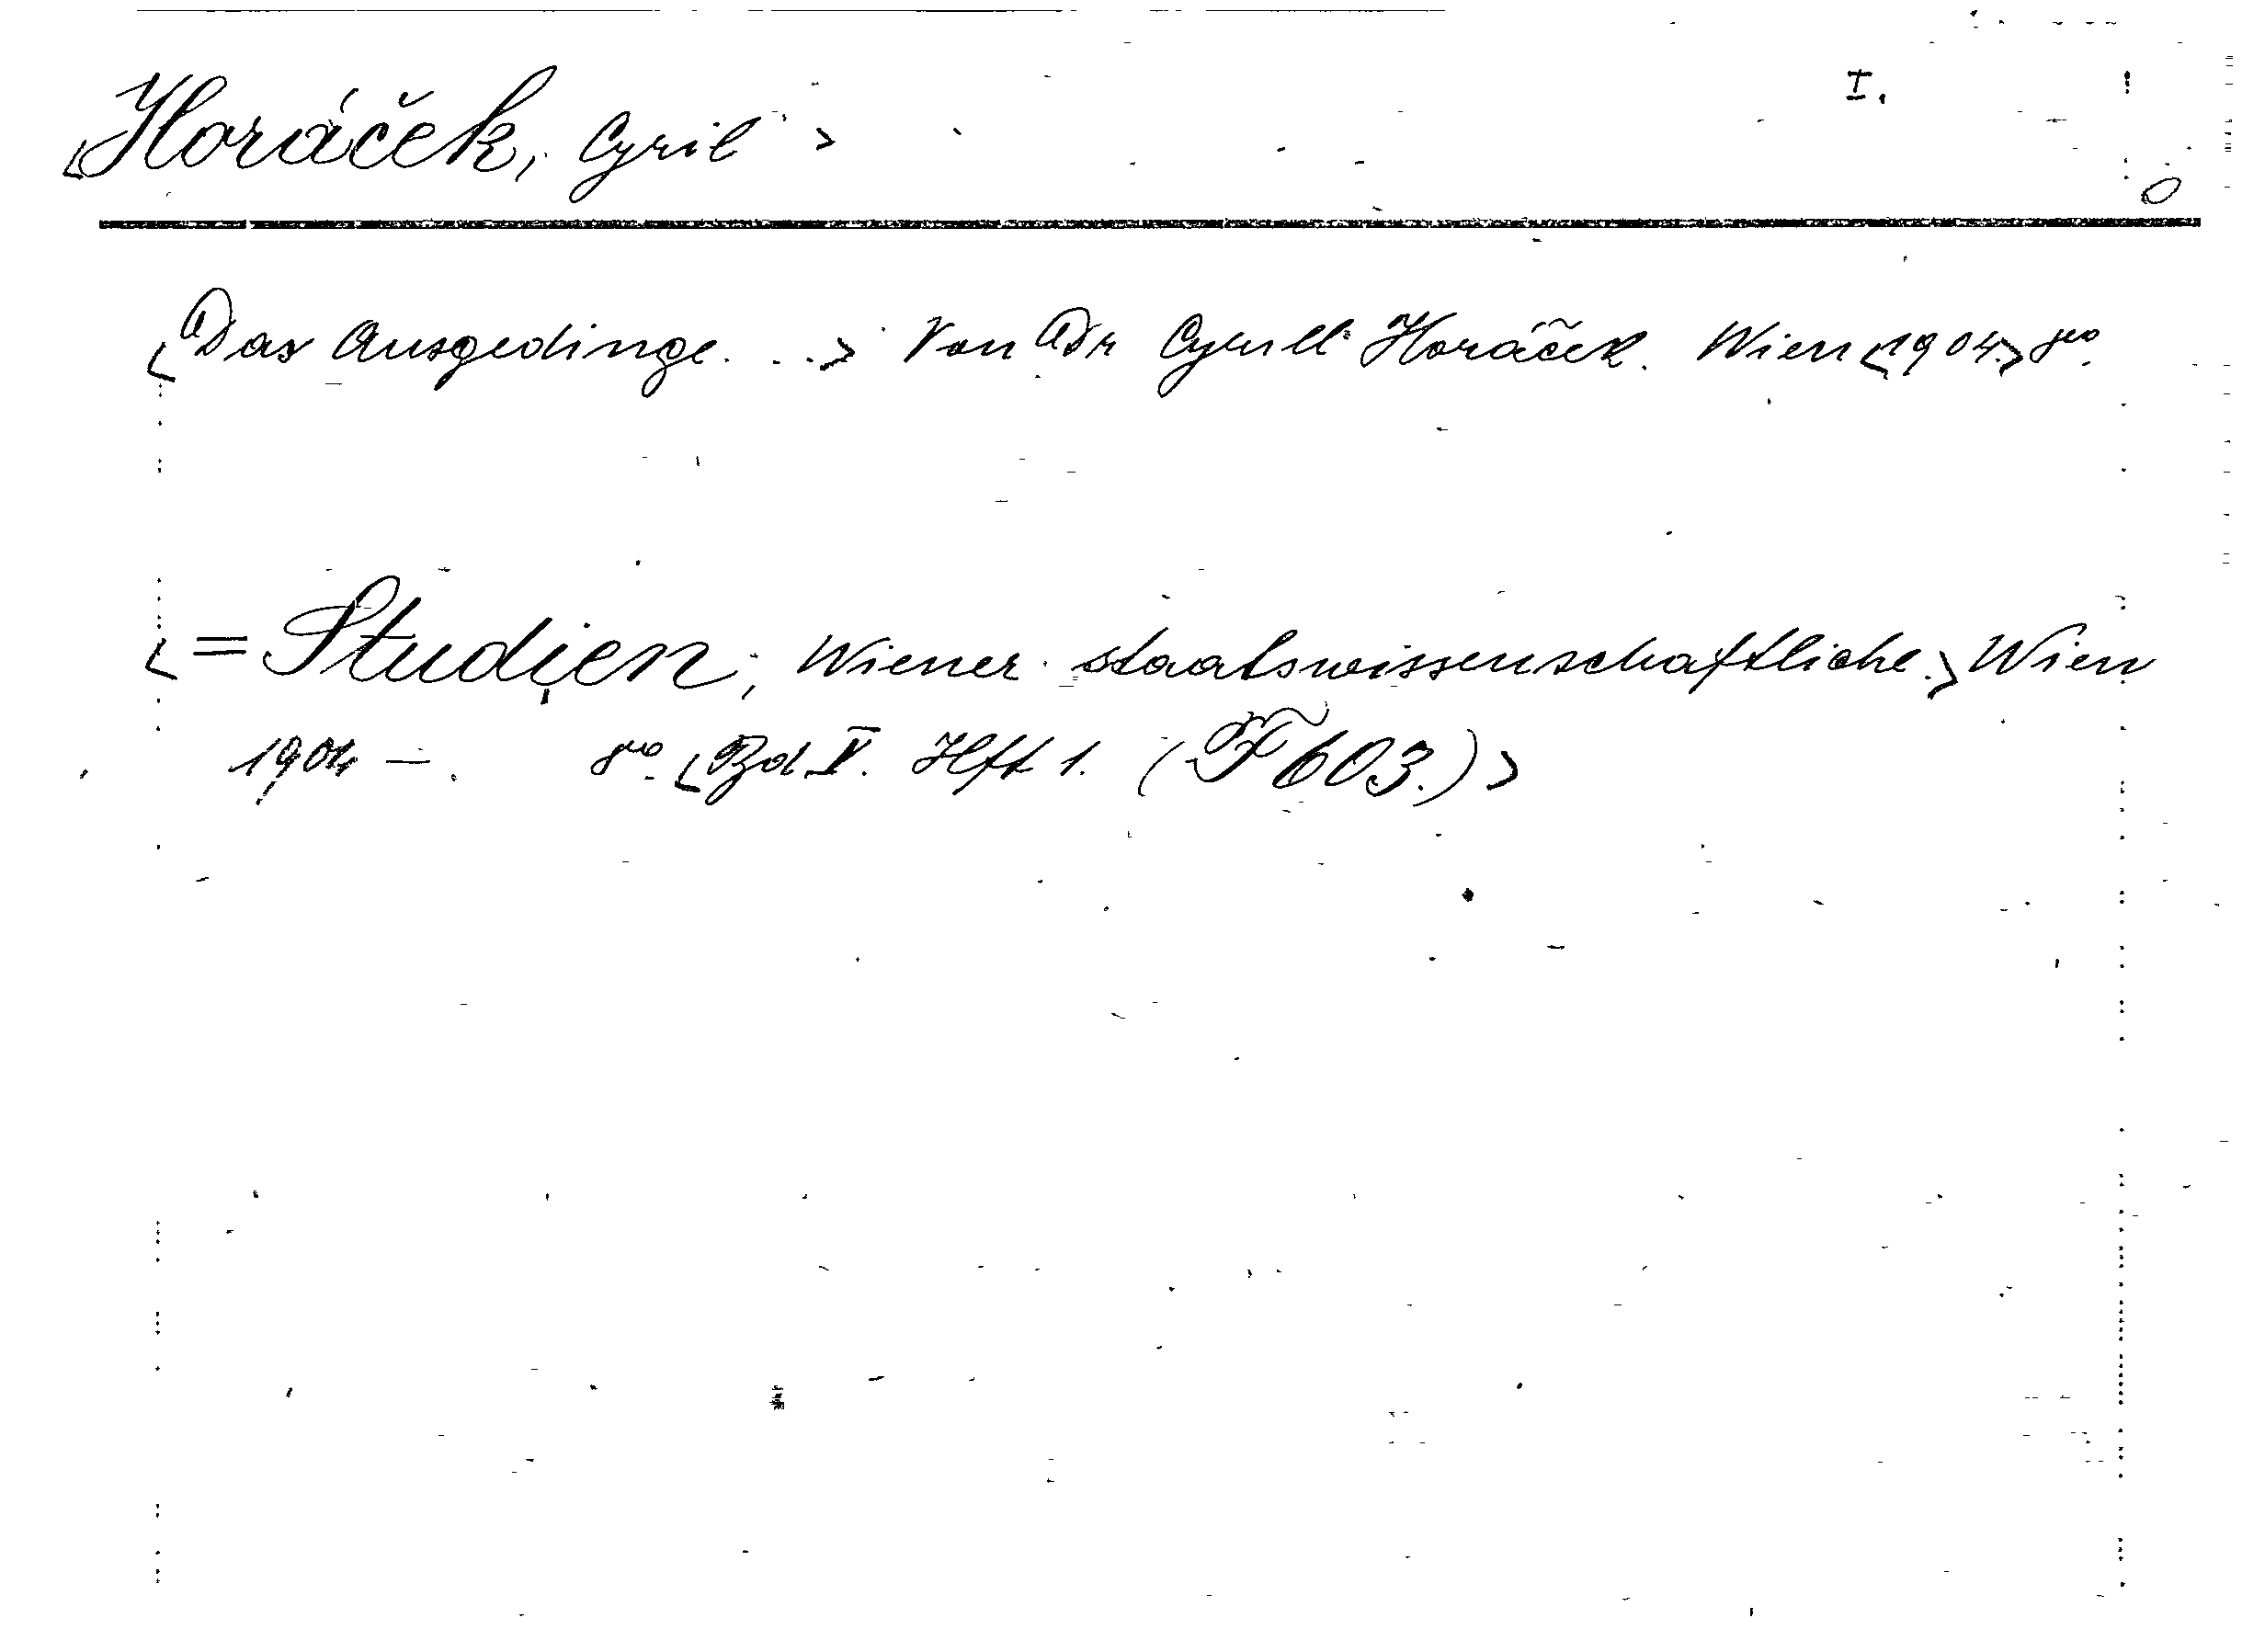 <Horáček, Cyril> I.
<Das Ausgedinge...> Von Dr Cyrill Horáček. Wien <1904.> 8vo.
<= Studien, Wiener staatswissenschaftliche.> Wien
1904 —. 8vo. <Bd V. Hft 1. (F 603.)>